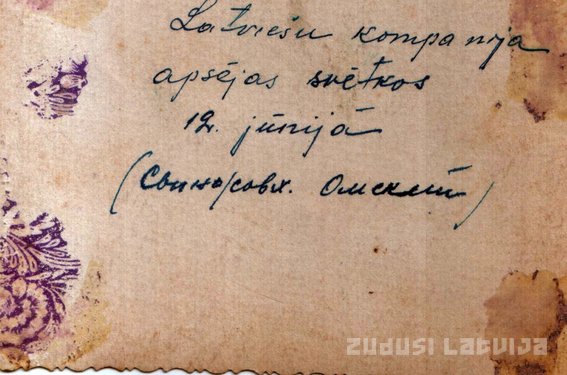 Latviešu kompanija
apsējas svētkos
12. jūnijā
(Свинo/совх. Омский)
ZUDUSI LATVIJA